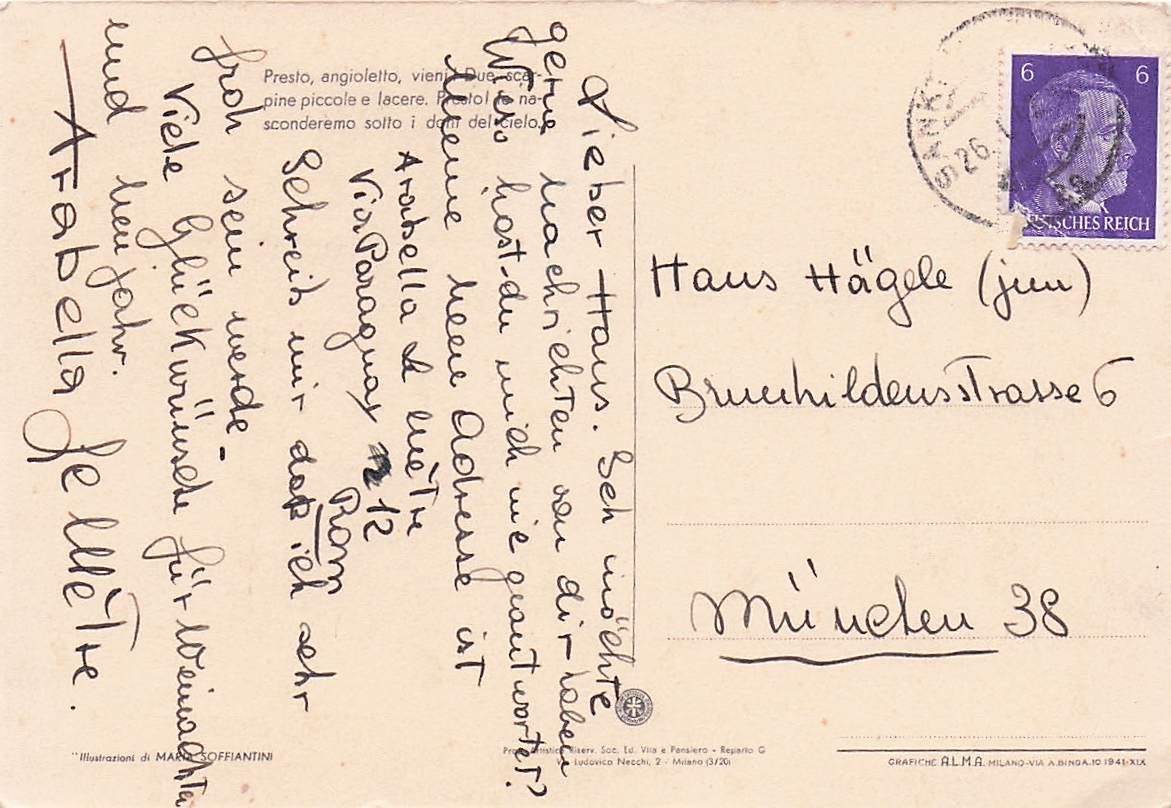 Presto, angioletto, vieni! Due scar-
pine piccole e lacere. Presto! le na-
sconderemo sotto i doni del cielo.
Lieber Hans. Ich möchte
gerne nachrichten von dir haben
Wieso hast du mich nie geantwortet?
Meine neue Adresse ist
Arabella Le Mètre
Via Paraguay n 12
Rom
Schreib mir daß ich sehr
froh sein werde -
Viele Glückwünsche für Weinachten
und neu jahr.
Arabella Le Mètre.
"Illustrazioni di MARIA SOFFIANTINI
Propr. Artistica Riserv. Soc. Ed. Vita e Pensiero - Reparto G
Via Ludovico Necchi, 2 - Milano (3/20)
SANKT
26.
6 6
DEUTSCHES REICH
Hans Hägele (jun)
Brunhildensstrasse 6
München 38
GRAFICHE A.L.M.A. MILANO-VIA A.BINDA.10 1941-XIX